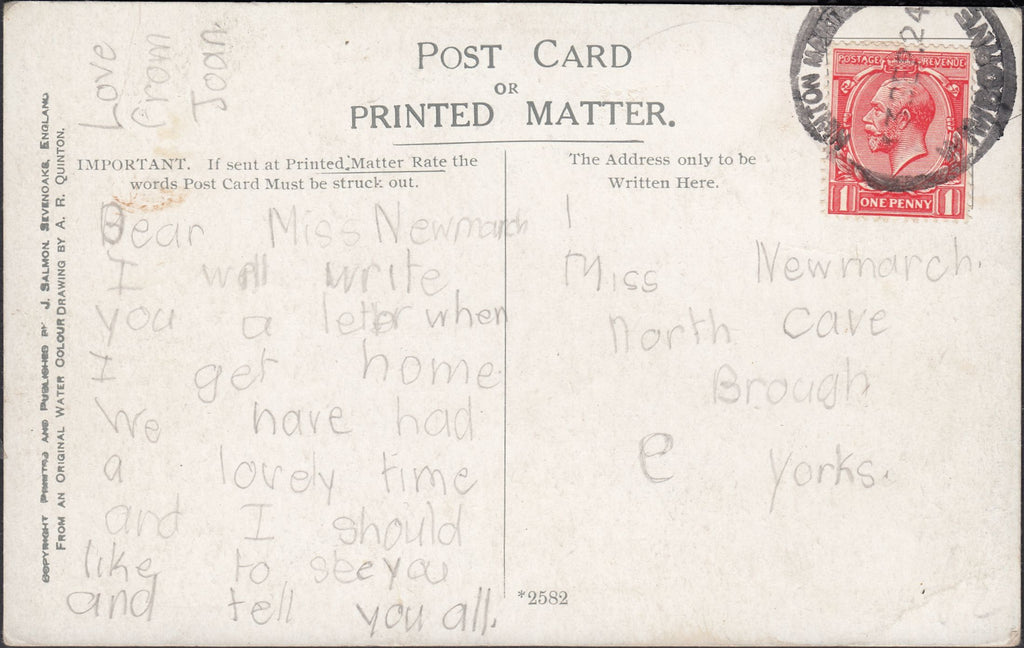 POST CARD
OR
PRINTED MATTER.
IMPORTANT. If sent at Printed Matter Rate the
words Post Card Must be struck out.
The Address only to be
Written Here.
POSTAGE REVENUE
1 ONE PENNY 1
24
Dear Miss Newmarch
I will write
you a letter when
I get home
We have had
a lovely time
and I should
like to see you
and tell you all.
Love
From
Joan
Miss Newmarch.
North Cave
Brough
E Yorks.
*2582
COPYRIGHT PRINTED AND PUBLISHED BY J. SALMON, SEVENOAKS, ENGLAND
FROM AN ORIGINAL WATER COLOUR DRAWING BY A. R. QUINTON.